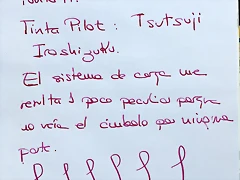 Tinta Pilot: Tsutsuji
Iroshizuku.
El sistema de carga me
resulta 1 poco peculiar porque
no veía el émbolo por ninguna
parte.